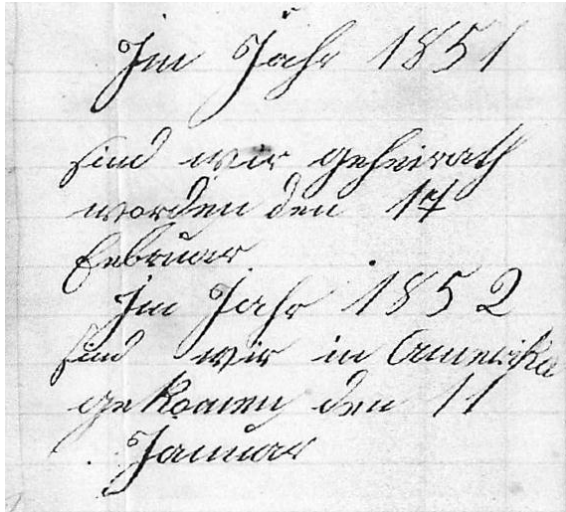 Im Jahr 1851
sind wir geheirath
worden den 17
Februar
Im Jahr 1852
sind wir in Amerika
gekomen den 11
Januar